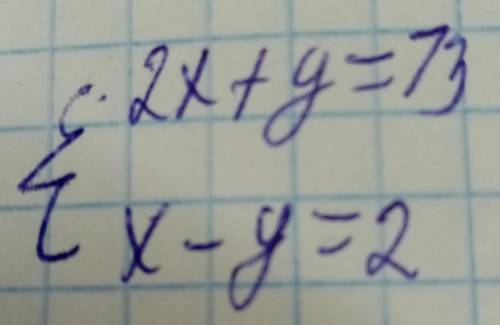 2x+y=73
x-y=2